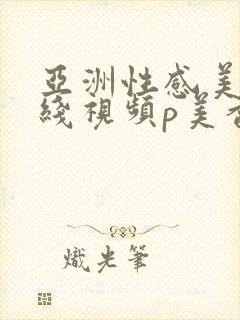 亞洲性感美
綫視頻p美香
熾光筆